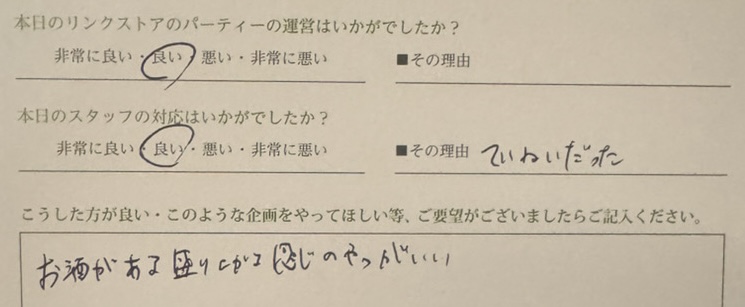 本日のリンクストアのパーティーの運営はいかがでしたか？
非常に良い・良い・悪い・非常に悪い ■その理由
本日のスタッフの対応はいかがでしたか？
非常に良い・良い・悪い・非常に悪い ■その理由 ていねいだった
こうした方が良い・このような企画をやってほしい等、ご要望がございましたらご記入ください。
お酒がある盛り上がる感じのやつがいい